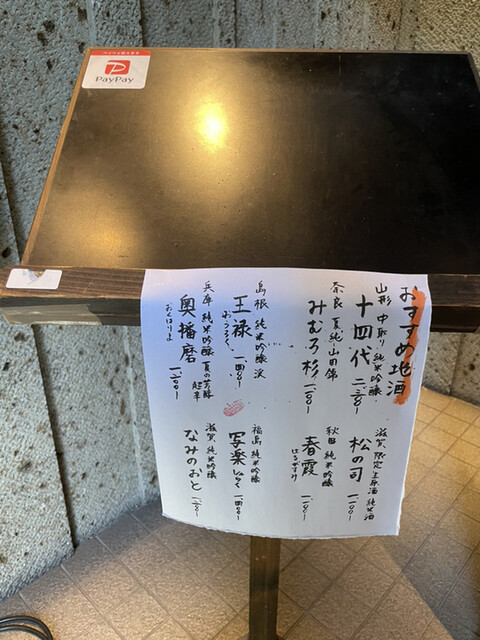 PayPay
おすすめ地酒
山形 中取り 純米吟醸
十四代 二二〇〇
奈良 夏純 山田錦
みむろ杉 一二〇〇
島根 純米吟醸 渓
王禄 一四〇〇
おうろく
兵庫 純米吟醸 夏の芳醇
超辛
奥播磨 一二〇〇
おくはりま
滋賀 限定生原酒 純米酒
松の司 一一〇〇
秋田 純米吟醸
春霞
はるがすみ
福島 純米吟醸
写楽 しゃらく 一四〇〇
滋賀 純米吟醸
なみのおと